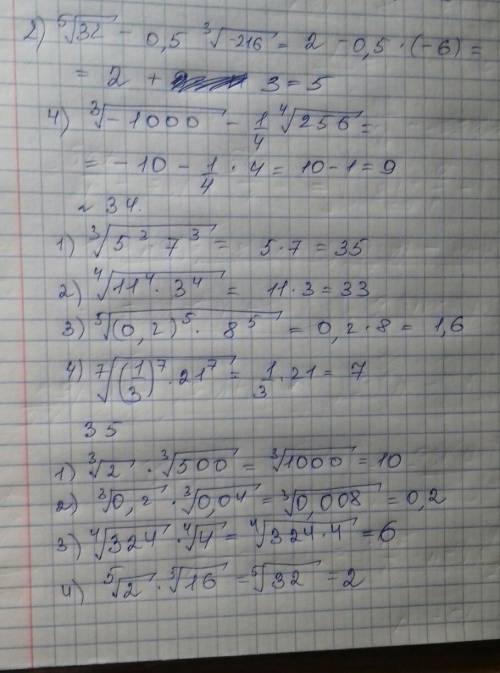 2) ⁵√32 - 0,5 ³√-216 = 2 - 0,5 · (-6) =
= 2 + 3 = 5
4) ³√-1000 - 1/4 ⁴√256 =
= -10 - 1/4 · 4 = 10 - 1 = 9
~ 34.
1) ³√5³ · 7³ = 5·7 = 35
2) ⁴√11⁴ · 3⁴ = 11·3 = 33
3) ⁵√(0,2)⁵ · 8⁵ = 0,2·8 = 1,6
4) ⁷√(1/3)⁷ · 21⁷ = 1/3 · 21 = 7
35
1) ³√2 · ³√500 = ³√1000 = 10
2) ³√0,2 · ³√0,04 = ³√0,008 = 0,2
3) ⁴√324 · ⁴√4 = ⁴√324·4 = 6
4) ⁵√2 · ⁵√16 = ⁵√32 = 2